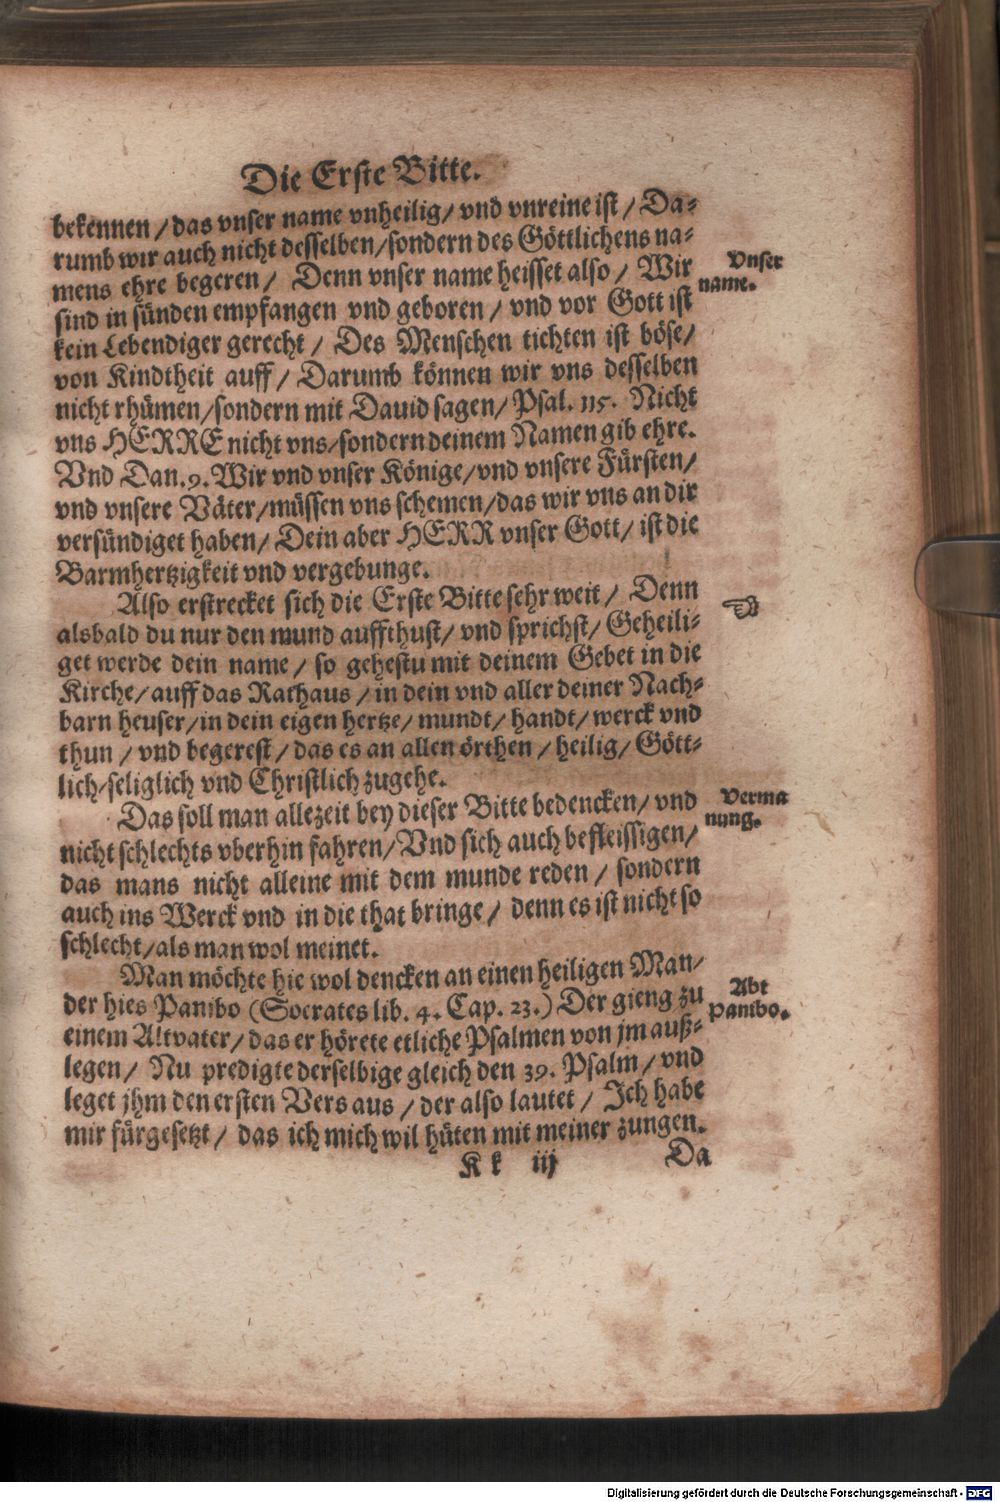 Die Erste Bitte.
bekennen / das vnser name vnheilig / vnd vnreine ist / Da-
rumb wir auch nicht desselben / sondern des Göttlichens na-
mens ehre begeren / Denn vnser name heisset also / Wir
Vnser
name.
sind in sünden empfangen vnd geboren / vnd vor Gott ist
kein Lebendiger gerecht / Des Menschen tichten ist böse /
von Kindtheit auff / Darumb können wir vns desselben
nicht rhümen / sondern mit Dauid sagen / Psal. 115. Nicht
vns HERRE nicht vns / sondern deinem Namen gib ehre.
Vnd Dan. 9. Wir vnd vnser Könige / vnd vnsere Fürsten /
vnd vnsere Väter / müssen vns schemen / das wir vns an dir
versündiget haben / Dein aber HERR vnser Gott / ist die
Barmhertzigkeit vnd vergebunge.
Also erstrecket sich die Erste Bitte sehr weit / Denn
☜
alsbald du nur den mund auffthust / vnd sprichst / Geheili-
get werde dein name / so gehestu mit deinem Gebet in die
Kirche / auff das Rathaus / in dein vnd aller deiner Nach-
barn heuser / in dein eigen hertze / mundt / handt / werck vnd
thun / vnd begerest / das es an allen örthen / heilig / Gött-
lich / seliglich vnd Christlich zugehe.
Das soll man allezeit bey dieser Bitte bedencken / vnd
Verma
nung.
nicht schlechts vberhin fahren / Vnd sich auch befleissigen /
das mans nicht alleine mit dem munde reden / sondern
auch ins Werck vnd in die that bringe / denn es ist nicht so
schlecht / als man wol meinet.
Man möchte hie wol dencken an einen heiligen Man /
der hies Pambo (Socrates lib. 4. Cap. 23.) Der gieng zu
Abt
Pambo.
einem Altvater / das er hörete etliche Psalmen von jm auß-
legen / Nu predigte derselbige gleich den 39. Psalm / vnd
leget jhm den ersten Vers aus / der also lautet / Ich habe
mir fürgesetzt / das ich mich wil hüten mit meiner zungen.
K k iij
Da
Digitalisierung gefördert durch die Deutsche Forschungsgemeinschaft - DFG